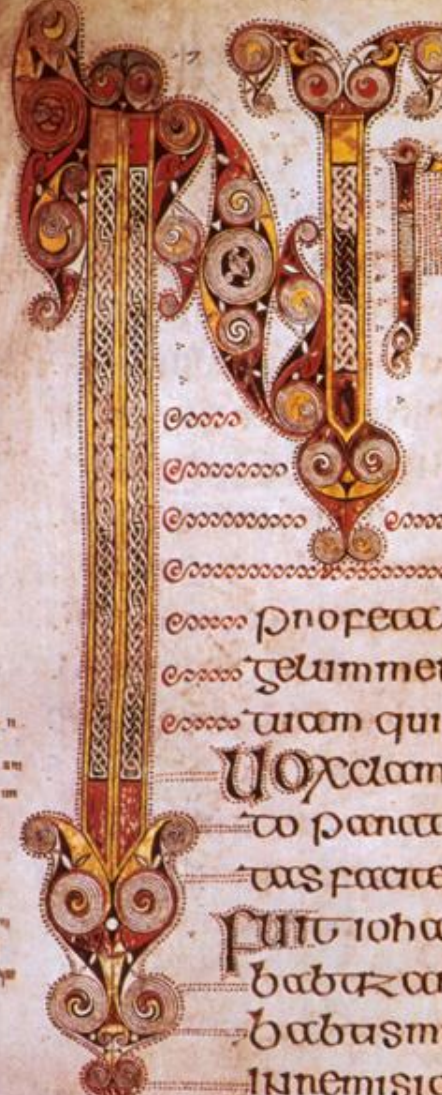 INI
profeta
gelum me
tuam qui
uox clam
to para
tas facite
fuit ioha
babtiza
babtism
in remisio